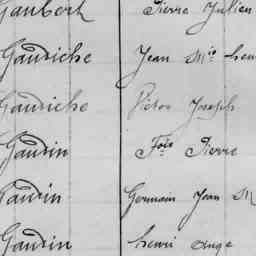 Gaubert Pierre Julien
Gauriche Jean Mie
Gauriche Victor Joseph
Gaurin Fois Pierre
Gaurin Germain Jean M
Gaurin henri ange